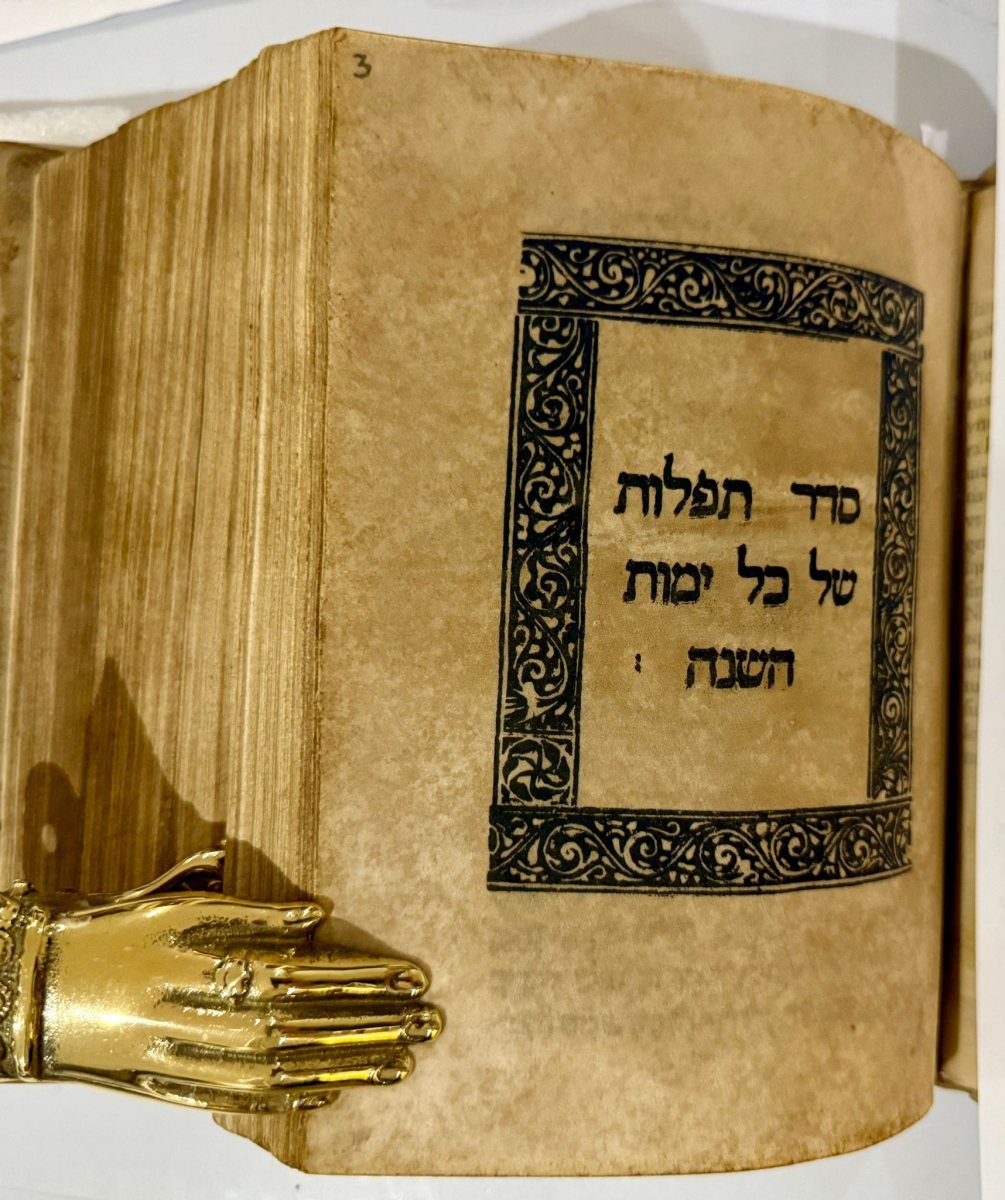 3
סדר תפלות
של כל ימות
השנה :